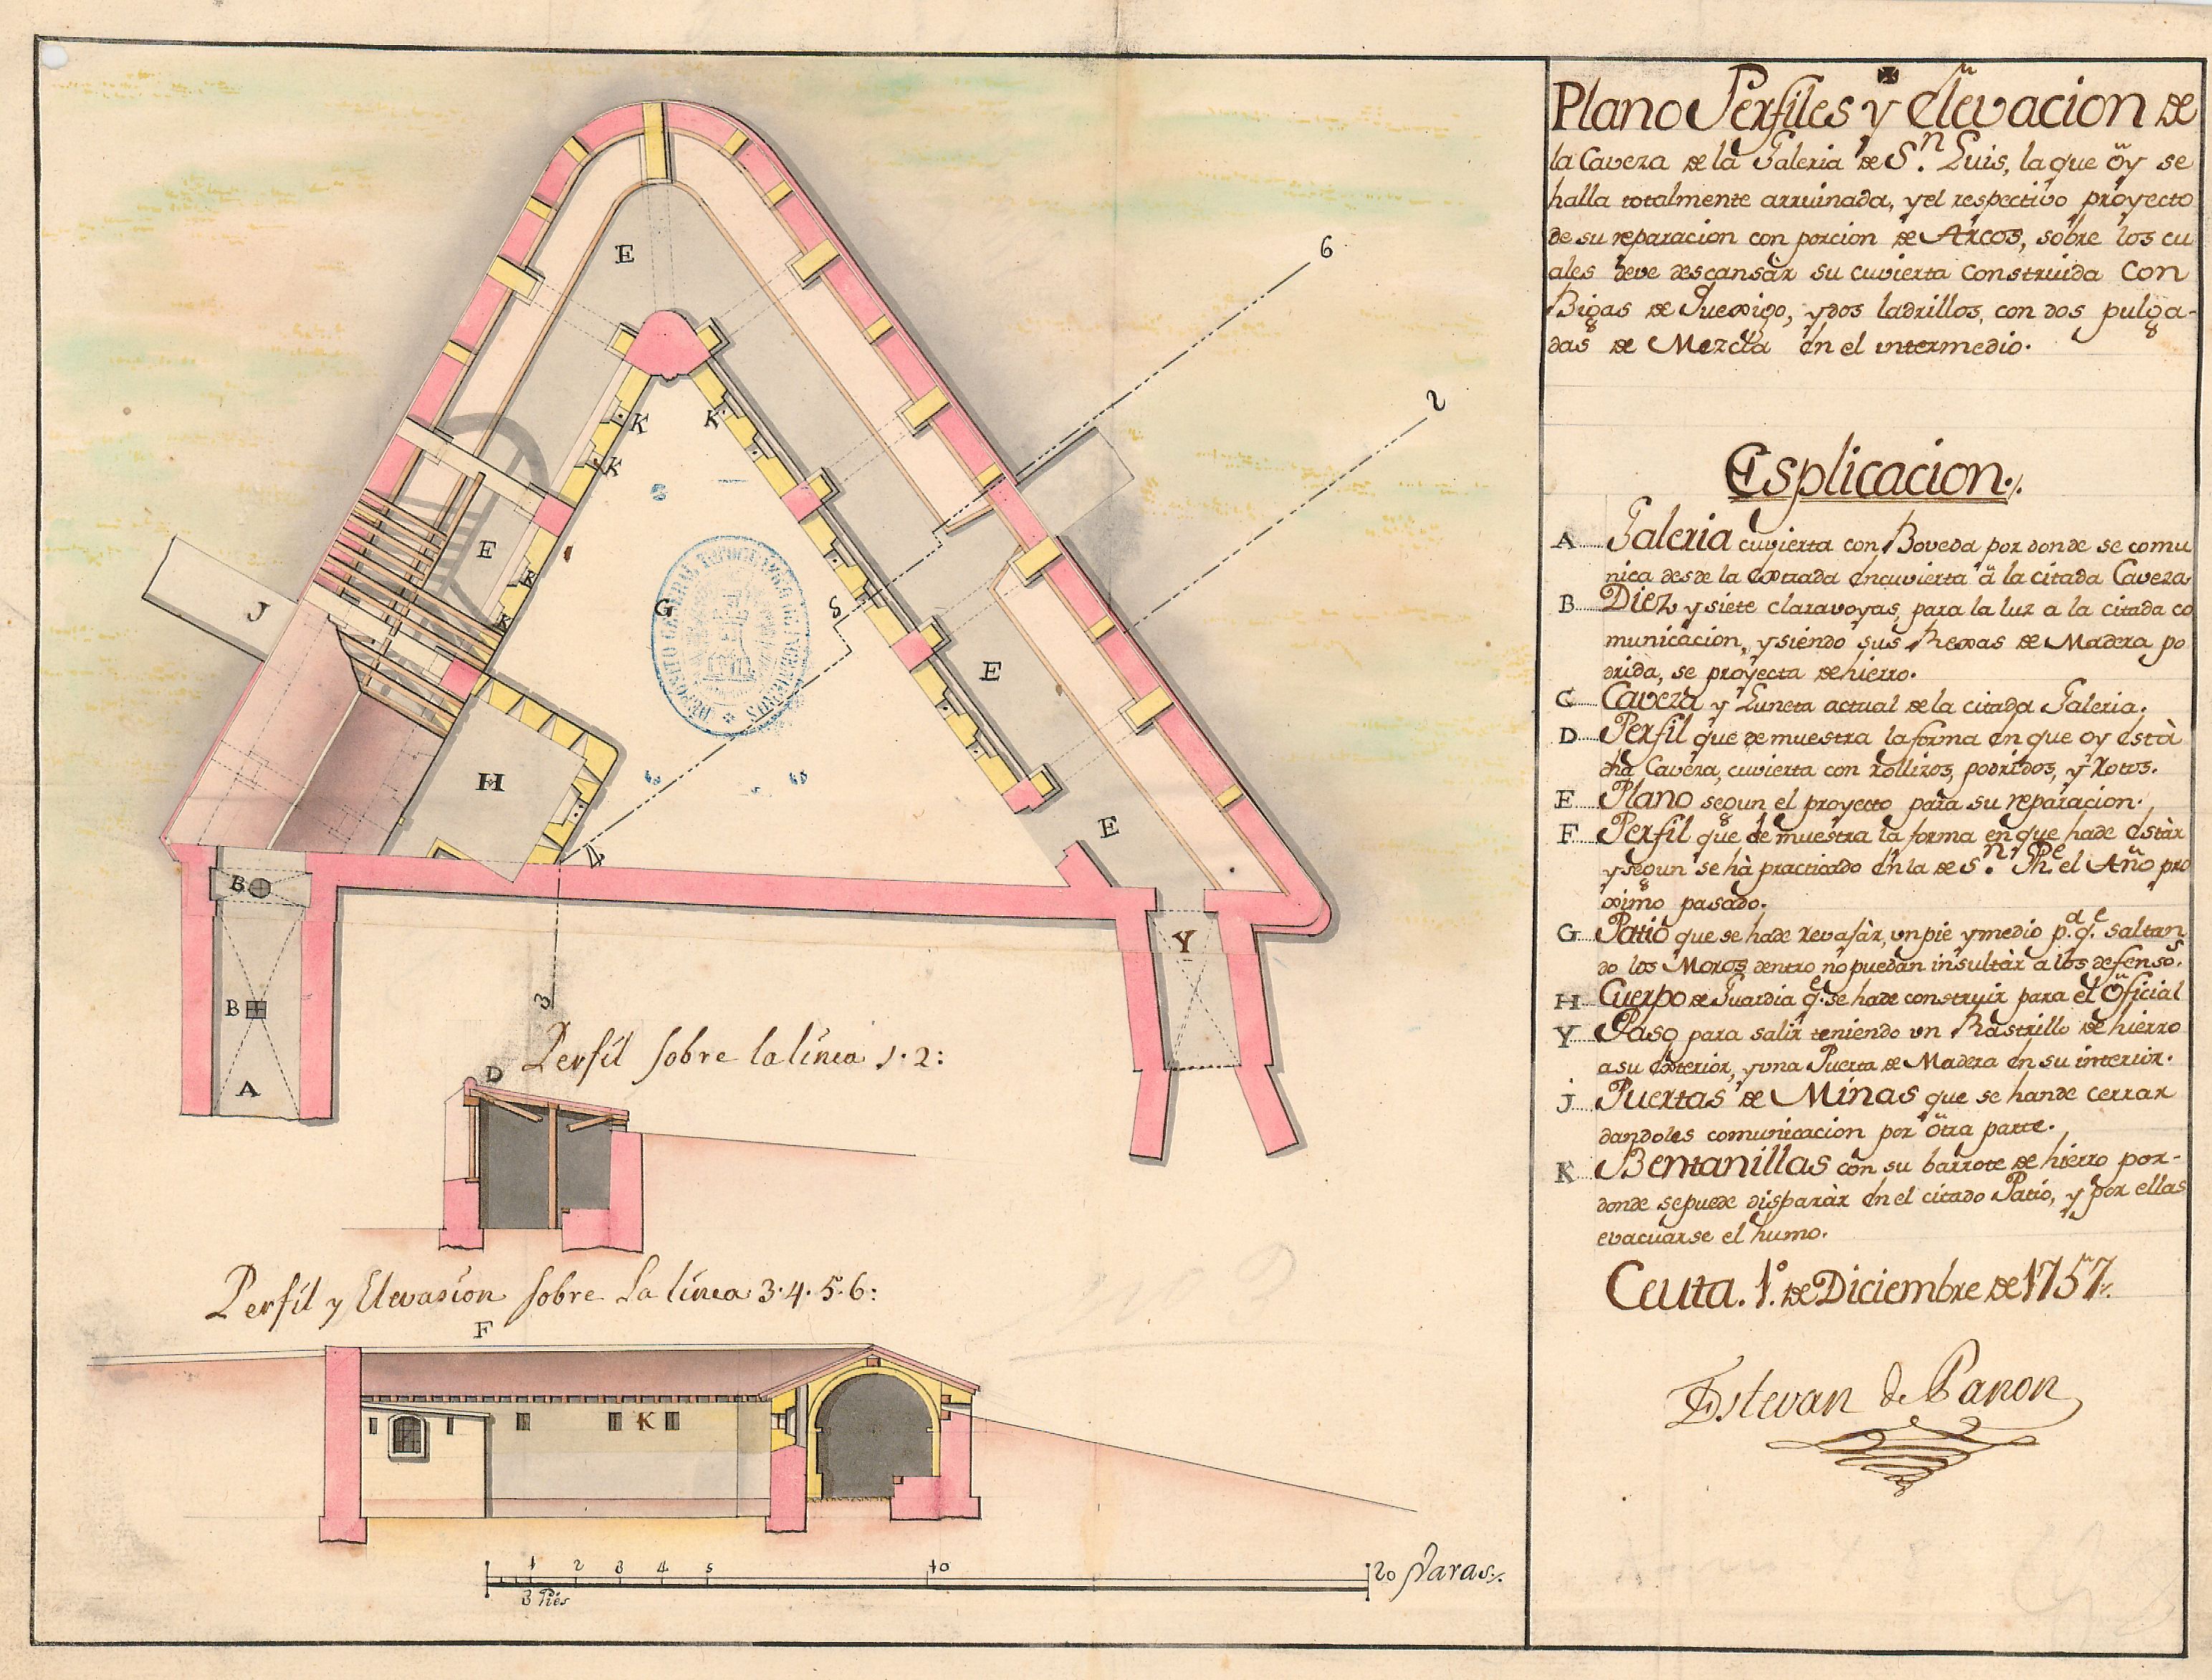 Plano Perfiles y Elevacion de
la Caveza de la Galeria de S.n Luis, la que oy se
halla totalmente arruinada, y el respectivo proyecto
de su reparacion con porcion de Arcos, sobre los cu
ales deve descansàr su cuvierta construida con
Bigas de Quexigo, y dos ladrillos, con dos pulga-
das de Mezcla en el intermedio.
Esplicacion./.
A.... Galeria cuvierta con Boveda por donde se comu
nica desde la Extrada encuvierta à la citada Caveza
B.... Diez y siete claravoyas, para la luz a la citada co
municacion, y siendo sus Rexas de Madera po
drida, se proyecta de hierro.
C.... Caveza y Luneta actual de la citada Galeria.
D.... Perfil que demuestra la forma en que oy està
dha Caveza, cuvierta con rollizos, podridos, y Rotos.
E.... Plano segun el proyecto para su reparacion.
F.... Perfil que demuestra la forma en que hade estàr
y segun se hà practicado en la de S.n Ph.e el Año pro
ximo pasado.
G.... Patio que se hade revajàr, un pie y medio p.a q.e saltan
do los Moros dentro no puedan insultàr a los defenso.s
H.... Cuerpo de Guardia q.e se hade construir para el Oficial
Y.... Paso para salir teniendo un Rastrillo de hierro
a su Exterior, y una Puerta de Madera en su interior.
J.... Puertas de Minas que se hande cerrar
dandoles comunicacion por otra parte.
K.... Bentanillas con su barrote de hierro por-
donde se puede disparàr en el citado Patio, y por ellas
evacuarse el humo.
Ceuta. 1.º de Diciembre de 1757.
Estevan de Panon
6
2
E
K
K
K
E
J
G
5
K
K
E
H
E
4
B
Y
3
B
A
Perfil sobre la linea 1.2:
D
Perfil y Elevasion sobre La linea 3.4.5.6:
F
K
1 2 3 4 5 10 20 Varas./.
3 Pies